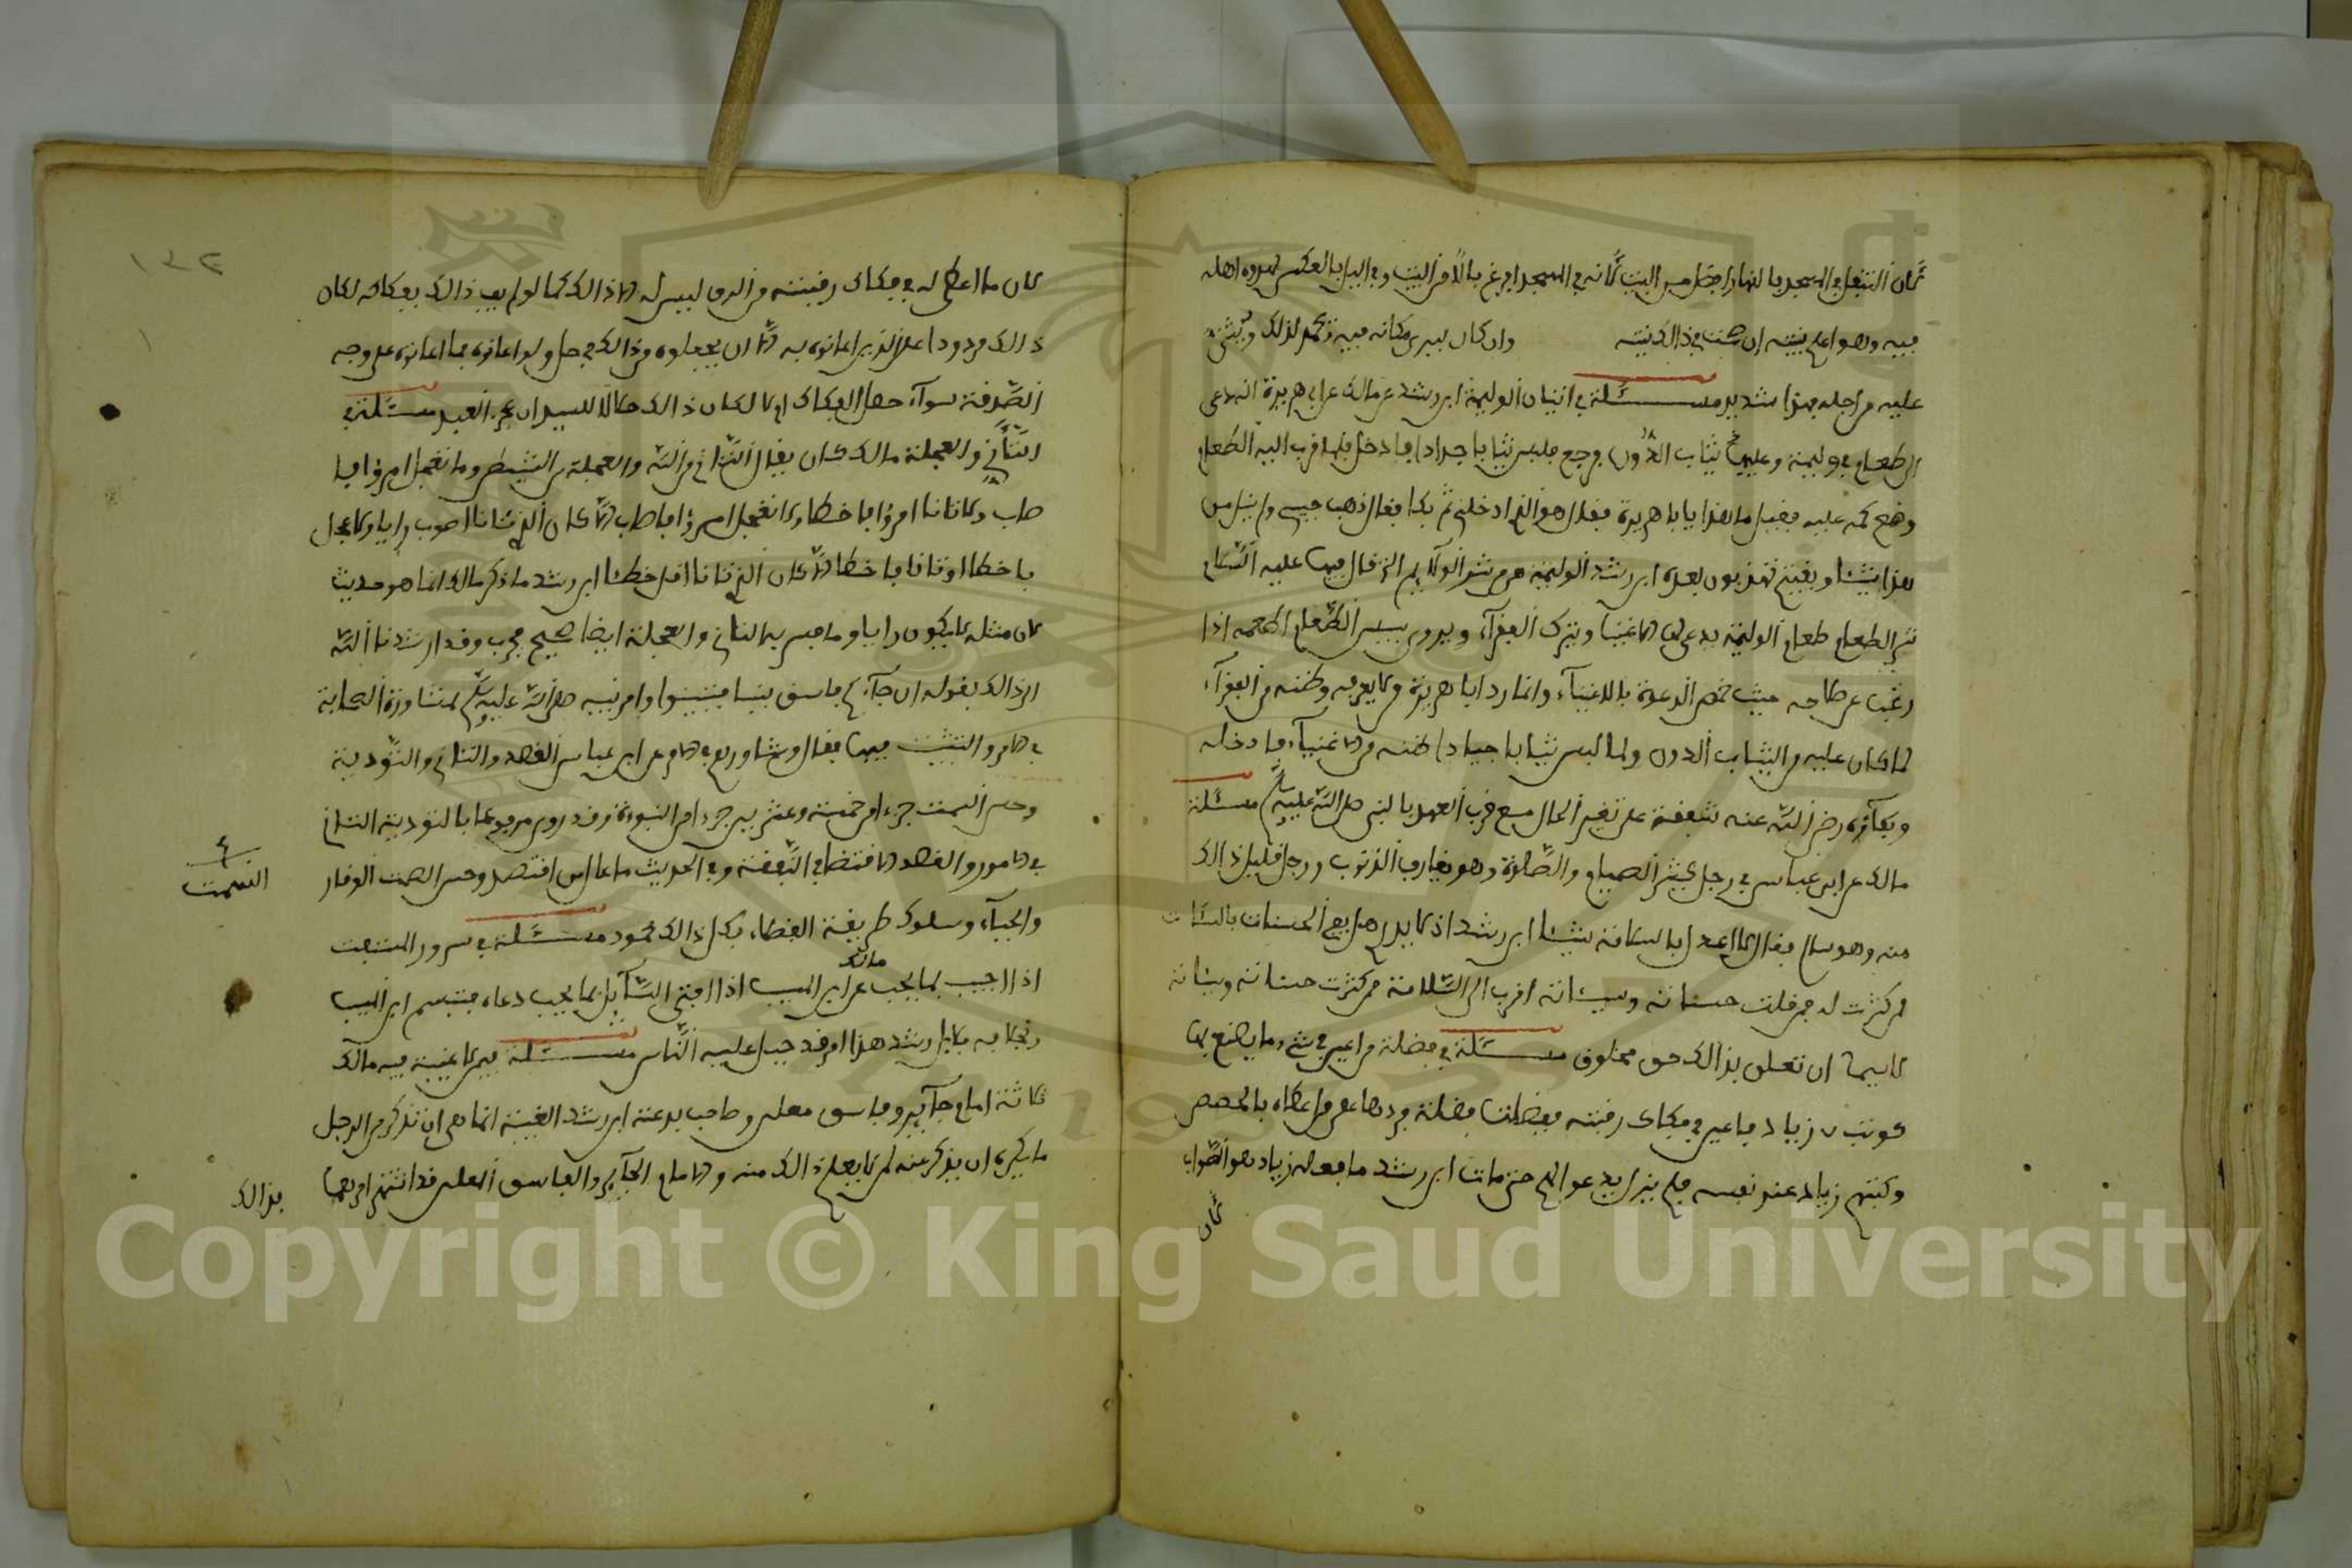 لان التنفل في المسجد بالنهار افضل من البيت لانه في المسجد افرغ بالا من البيت وفي الليل بالعكس لهدوء اهله
فيه وهو اعلم بنيته ان صحت في ذالك نيته وان كان ليرى مكانه فيه ويحمد لذلك
عليه من اجله فهذا شديد مسئلة في اتيان الوليمة ابن رشد عن مالك عن ابي هريرة انه دعي
الى طعام في وليمة وعليه ثياب الدون فرجع فلبس ثيابا جيادا فادخل فلما قرب اليه الطعام
وضع كمه عليه فقيل ما هذا يا ابا هريرة فقال هو الذي ادخلني ثم بكا فقال ذهب حبيبي ولم ينل من
هذا شيئا وبقيتم تهذبون بعده ابن رشد الوليمة هي من شر الولايم التي قال فيها عليه السلام
شر الطعام طعام الوليمة يدعى لها الاغنياء ويترك الفقراء ويروى بيس الطعام اطعمه اذا
رغب عن طاجه حيث خص الدعوة بالاغنياء وانما رد ابا هريرة من لا يعرفه وظنه من الفقراء
لما كان عليه من الثياب الدون ولما لبس ثيابا جيادا ظنه من الاغنياء فادخله
وبكاؤه رضي الله عنه شفقة على تغير الحال مع قرب العهد بالنبي صلى الله عليه وسلم مسئلة
مالك عن ابن عباس في رجل كثير الصيام والصلاة وهو يقارف الذنوب ورجل قليل ذالك
منه وهو سالم فقال لا اعدل بالسلامة شيئا ابن رشد اذ لا يدري هل يفي الحسنات بالسيئات
من كثرت له فمن قلت حسناته وسيئاته اقرب الى السلامة ممن كثرت حسناته وسيئاته
لا سيما ان تعلق بذالك حق مخلوق مسئلة في فضلة من اعين في شيء ما يصنع بها
كوتب زياد فاعين في فكاك رقبته ففضلت فضلة فردها على من اعطاه بالحصص
وكتبهم زياد عند نفسه فلم يزل يدعو لهم حتى مات ابن رشد ما فعله زياد هو الصواب
لان
لان ما اعطي له في فكاك رقبته من الرق ليس له الا ذالك كما لو لم يف ذالك بفكاكه لكان
ذالك مردودا على الذين اعانوه به الا ان يجعلوه من ذالك في حل ولو اعانوه بما اعانوه على وجه
الصدقة سواء حصل الفكاك ام لا لكان ذالك حلالا للسيد ان عجز العبد مسئلة في
التأني والعجلة مالك كان يقال التأني من الله والعجلة من الشيطان وما تعجل امرؤ فا
صاب وتأنا امرؤ فاخطا ولا تعجل امرؤ فاصاب الا كان الذي تأنا اصوب رايا ولا عجل
فاخطا او تأنا فاخطا الا كان الذي تأنا اقل خطئا ابن رشد ما ذكر مالك انما هو حديث
لان مثله لا يكون رايا وما فيه من التأني والعجلة ايضا صحيح مجرب وقد ارشدنا الله
الى ذالك بقوله ان جاءكم فاسق بنبا فتبينوا وامر نبيه صلى الله عليه وسلم لمشاورة الصحابة
في الامر والتثبت فيها فقال وشاورهم في الامر وعن ابن عباس القصد والتأني والتؤدة
وحسن السمت جزء من خمسة وعشرين جزءا من النبوءة وقد روي مرفوعا بالتؤدة التأني
في الامور والقصد الاقتصاد في النفقة وفي الحديث ما عال من اقتصد وحسن الصمت الوقار
والحياء وسلوك طريقة الفضلاء فكل ذالك محمود مسئلة في سرور المستفت
اذا اجيب بما يحب مالك عن ابن المسيب اذا افتى السائل بما يحب دعاه فتبسم ابن المسيب
ابن رشد هذا امر قد جبل عليه الناس مسئلة فيمن لا غيبة فيه مالك
ثلاثة امام جائر وفاسق معلن وصاحب بدعة ابن رشد الغيبة انما هي ان تذكر من الرجل
ما يكره ان يذكر عنه لمن لا يعلم ذالك منه والامام الجائر والفاسق المعلن قد اشتهر امرهما
بذالك
السمت